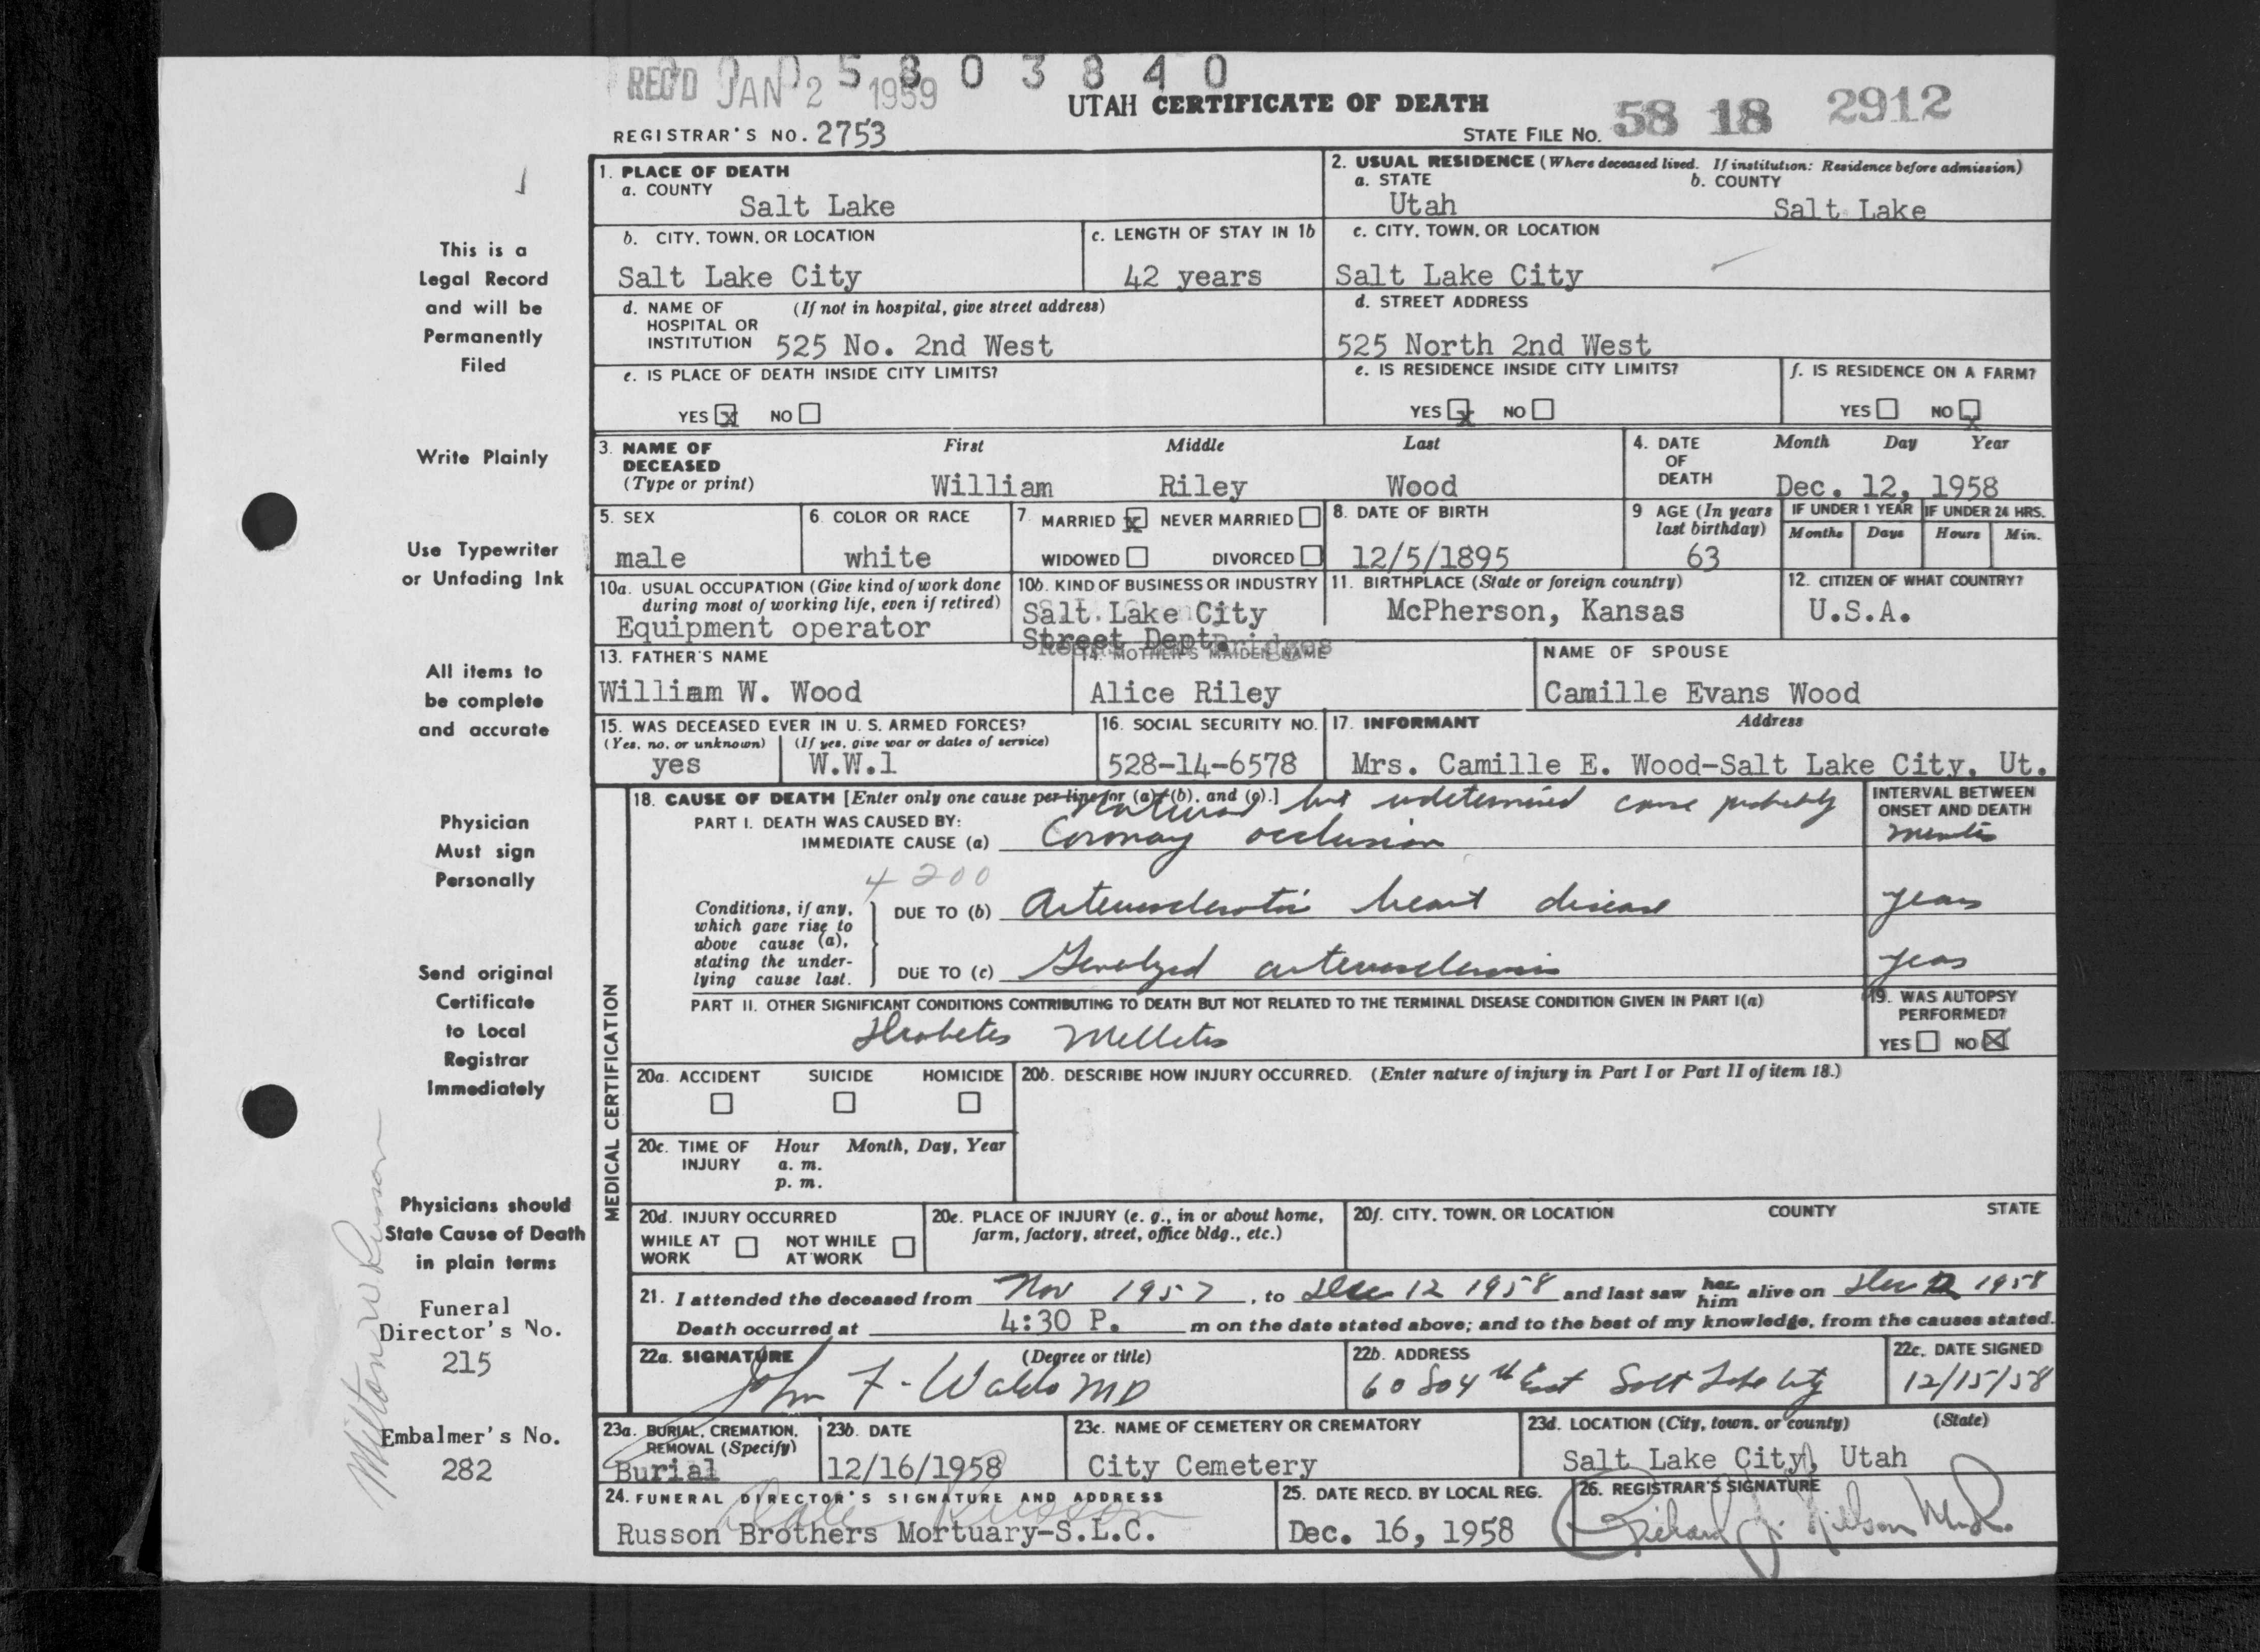 REC'D JAN 2 1959
5 8 0 3 8 4 0
UTAH CERTIFICATE OF DEATH
58 18 2912
REGISTRAR'S NO. 2753
STATE FILE No.
This is a
Legal Record
and will be
Permanently
Filed
Write Plainly
Use Typewriter
or Unfading Ink
All items to
be complete
and accurate
Physician
Must sign
Personally
Send original
Certificate
to Local
Registrar
Immediately
Physicians should
State Cause of Death
in plain terms
Funeral
Director's No.
215
Embalmer's No.
282
Milton W Russon
1. PLACE OF DEATH
a. COUNTY
Salt Lake
2. USUAL RESIDENCE (Where deceased lived. If institution: Residence before admission)
a. STATE b. COUNTY
Utah Salt Lake
b. CITY, TOWN, OR LOCATION
Salt Lake City
c. LENGTH OF STAY IN 1b
42 years
c. CITY, TOWN, OR LOCATION
Salt Lake City
d. NAME OF (If not in hospital, give street address)
HOSPITAL OR
INSTITUTION 525 No. 2nd West
d. STREET ADDRESS
525 North 2nd West
e. IS PLACE OF DEATH INSIDE CITY LIMITS?
YES x NO
e. IS RESIDENCE INSIDE CITY LIMITS?
YES x NO
f. IS RESIDENCE ON A FARM?
YES NO x
3. NAME OF First Middle Last
DECEASED
(Type or print) William Riley Wood
4. DATE Month Day Year
OF
DEATH Dec. 12, 1958
5. SEX
male
6. COLOR OR RACE
white
7. MARRIED x NEVER MARRIED
WIDOWED DIVORCED
8. DATE OF BIRTH
12/5/1895
9 AGE (In years
last birthday)
63
IF UNDER 1 YEAR IF UNDER 24 HRS.
Months Days Hours Min.
10a. USUAL OCCUPATION (Give kind of work done
during most of working life, even if retired)
Equipment operator
10b. KIND OF BUSINESS OR INDUSTRY
Salt Lake City
Street Dept.
Bridges
11. BIRTHPLACE (State or foreign country)
McPherson, Kansas
12. CITIZEN OF WHAT COUNTRY?
U.S.A.
13. FATHER'S NAME
William W. Wood
14. MOTHER'S MAIDEN NAME
Alice Riley
NAME OF SPOUSE
Camille Evans Wood
15. WAS DECEASED EVER IN U. S. ARMED FORCES?
(Yes, no, or unknown) (If yes, give war or dates of service)
yes W.W.1
16. SOCIAL SECURITY NO.
528-14-6578
17. INFORMANT Address
Mrs. Camille E. Wood-Salt Lake City, Ut.
MEDICAL CERTIFICATION
18. CAUSE OF DEATH [Enter only one cause per line for (a), (b), and (c).]
Natural but undetermined cause probably
PART I. DEATH WAS CAUSED BY:
IMMEDIATE CAUSE (a) Coronary occlusion
INTERVAL BETWEEN
ONSET AND DEATH
4200
Conditions, if any,
which gave rise to
above cause (a),
stating the under-
lying cause last.
DUE TO (b) Arteriosclerotic heart disease years
DUE TO (c) Generalized arteriosclerosis years
PART II. OTHER SIGNIFICANT CONDITIONS CONTRIBUTING TO DEATH BUT NOT RELATED TO THE TERMINAL DISEASE CONDITION GIVEN IN PART I(a)
Diabetes Mellitus
19. WAS AUTOPSY
PERFORMED?
YES NO X
20a. ACCIDENT SUICIDE HOMICIDE
20b. DESCRIBE HOW INJURY OCCURRED. (Enter nature of injury in Part I or Part II of item 18.)
20c. TIME OF Hour Month, Day, Year
INJURY a. m.
p. m.
20d. INJURY OCCURRED
WHILE AT NOT WHILE
WORK AT WORK
20e. PLACE OF INJURY (e. g., in or about home,
farm, factory, street, office bldg., etc.)
20f. CITY, TOWN, OR LOCATION COUNTY STATE
21. I attended the deceased from Nov 1957, to Dec 12 1958 and last saw her him alive on Dec 12 1958
Death occurred at 4:30 P. m on the date stated above; and to the best of my knowledge, from the causes stated.
22a. SIGNATURE (Degree or title)
John F. Waldo MD
22b. ADDRESS
60 So 4th East Salt Lake City
22c. DATE SIGNED
12/15/58
23a. BURIAL, CREMATION,
REMOVAL (Specify)
Burial
23b. DATE
12/16/1958
23c. NAME OF CEMETERY OR CREMATORY
City Cemetery
23d. LOCATION (City, town, or county) (State)
Salt Lake City, Utah
24. FUNERAL DIRECTOR'S SIGNATURE AND ADDRESS
Dale Russon
Russon Brothers Mortuary-S.L.C.
25. DATE RECD. BY LOCAL REG.
Dec. 16, 1958
26. REGISTRAR'S SIGNATURE
Richard J. Nelson M.D.